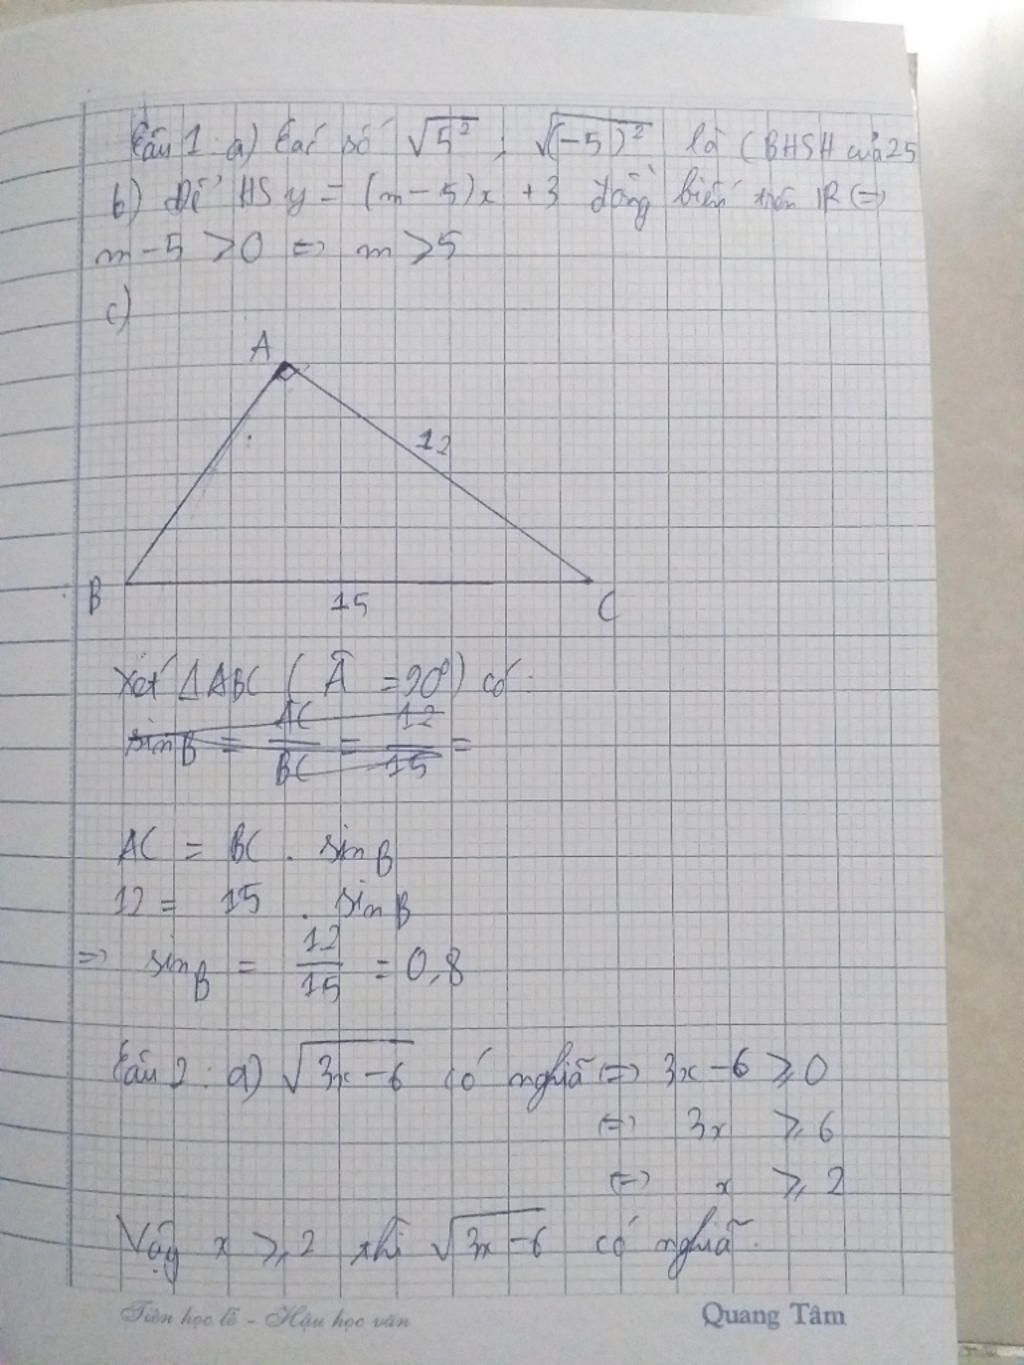 Câu 1: a) Các số √5² ; √(-5)² là CBHSH của 25
b) Để HS y = (m - 5)x + 3 đồng biến trên R <=>
m - 5 > 0 <=> m > 5
c)
A
12
B
15
C
Xét ΔABC ( Â = 90°) có:
sin B = AC/BC = 12/15 =
AC = BC . sin B
12 = 15 . sin B
=> sin B = 12/15 = 0,8
Câu 2: a) √3x-6 có nghĩa <=> 3x - 6 ⩾ 0
<=> 3x ⩾ 6
<=> x ⩾ 2
Vậy x ⩾ 2 thì √3x-6 có nghĩa.
Tiên học lễ - Hậu học văn Quang Tâm